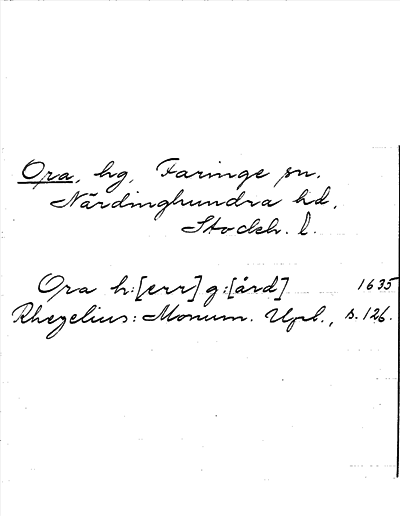 Ora, hg, Faringe sn.
Närdinghundra hd,
Stockh. l.
Ora h:[err] g:[ård] 1635
Rhezelius: Monum. Upl., s. 126.